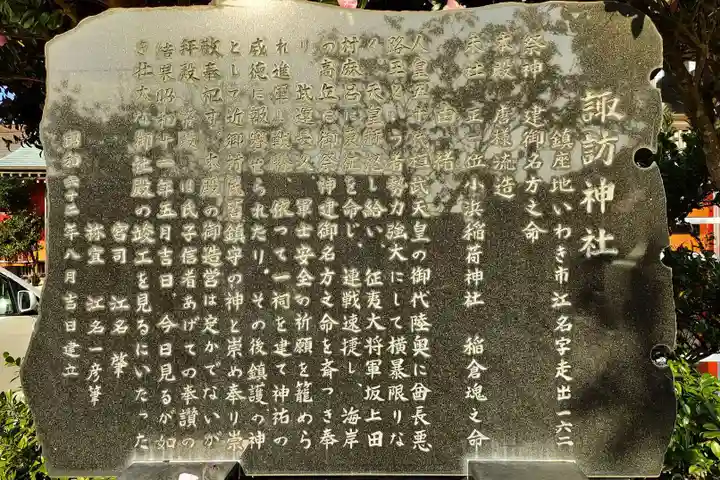 諏訪神社
鎮座地いわき市江名字走出一六二
祭神 建御名方之命
本殿 唐様流造
末社 正一位小浜稲荷神社 稲倉魂之命
由緒
人皇五十代桓武天皇の御代陸奥に酋長悪
路王という者勢力強大にして横暴限りな
く、天皇御 し給い、征夷大将軍坂上田
村麻呂に東征を命じ、連戦速捷し、海岸
の高丘に御祭神建御名方之命を斎つき奉
り、武運長久、軍士安全の祈願を籠めら
れ進軍し 、依って一祠を建て神祐の
威徳に報賽せられたり。その後鎮護の神
として近御 鎮守の神と崇め奉り崇
敬奉祀す、本殿の御造営は定かでないが
拝殿 は氏子信者あげての奉讃の
結果昭和 十一年五月吉日、今日見るが如
き壮大な御社殿の竣工を見るにいたった
宮司 江名 肇
祢宜 江名一彦筆
昭和六十二年八月吉日建立